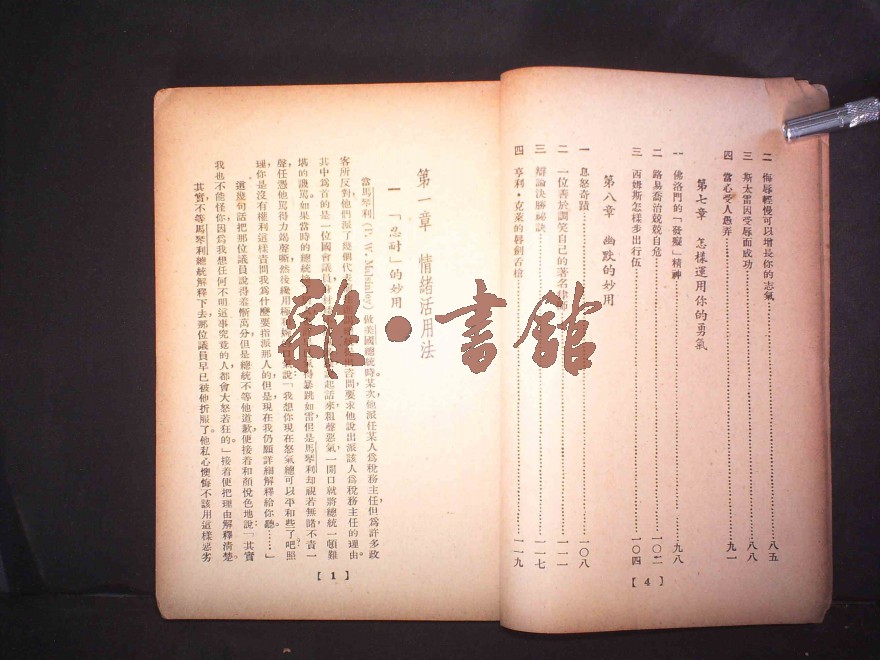 二 侮辱輕慢可以增長你的志氣………八五
三 斯太雷因受辱而成功………八八
四 當心受人愚弄………九一
第七章 怎樣運用你的勇氣
一 佛洛門的「發癡」精神………九八
二 路易喬治兢兢自危………一〇二
三 西姆斯怎樣步出行伍………一〇四
第八章 幽默的妙用
一 息怒奇蹟………一〇八
二 一位善於調笑自己的著名律師………一一一
三 辯論決勝祕訣………一一七
四 亨利・克萊的唇劍舌槍………一一九
【4】
第一章 情緒活用法
一 「忍耐」的妙用
當馬琴利(F. W. McKinley)做美國總統時,某次他派任某人爲稅務主任,但爲許多政
客所反對,他們派了幾個代表 要求他說出派該人爲稅務主任的理由。
其中爲首的是一位國會議員, 起話來粗聲惡氣,一開口就將總統一頓難
堪的譏罵。如果當時的總統 得暴跳如雷,但是馬琴利却視若無睹,不責一
聲,任憑他罵得力竭聲嘶,然後纔用極 說:「我想你現在怒氣總可以平和些了吧?照
理你是沒有權利這樣責問我爲什麼要指派那人的,但是,現在我仍願詳細解釋給你聽……」
這麼句話把那位議員說得羞慚萬分,但是總統不等他道歉,便接着和顏悅色地說:「其實
我也不能怪你,因爲我想任何不明這事究竟的人,都會大怒若狂的。」接着便把理由解釋清楚
其實,不等馬琴利總統解釋下去,那位議員早已被他折服了。他私心懊悔不該用這樣惡劣
【1】
雜・書館